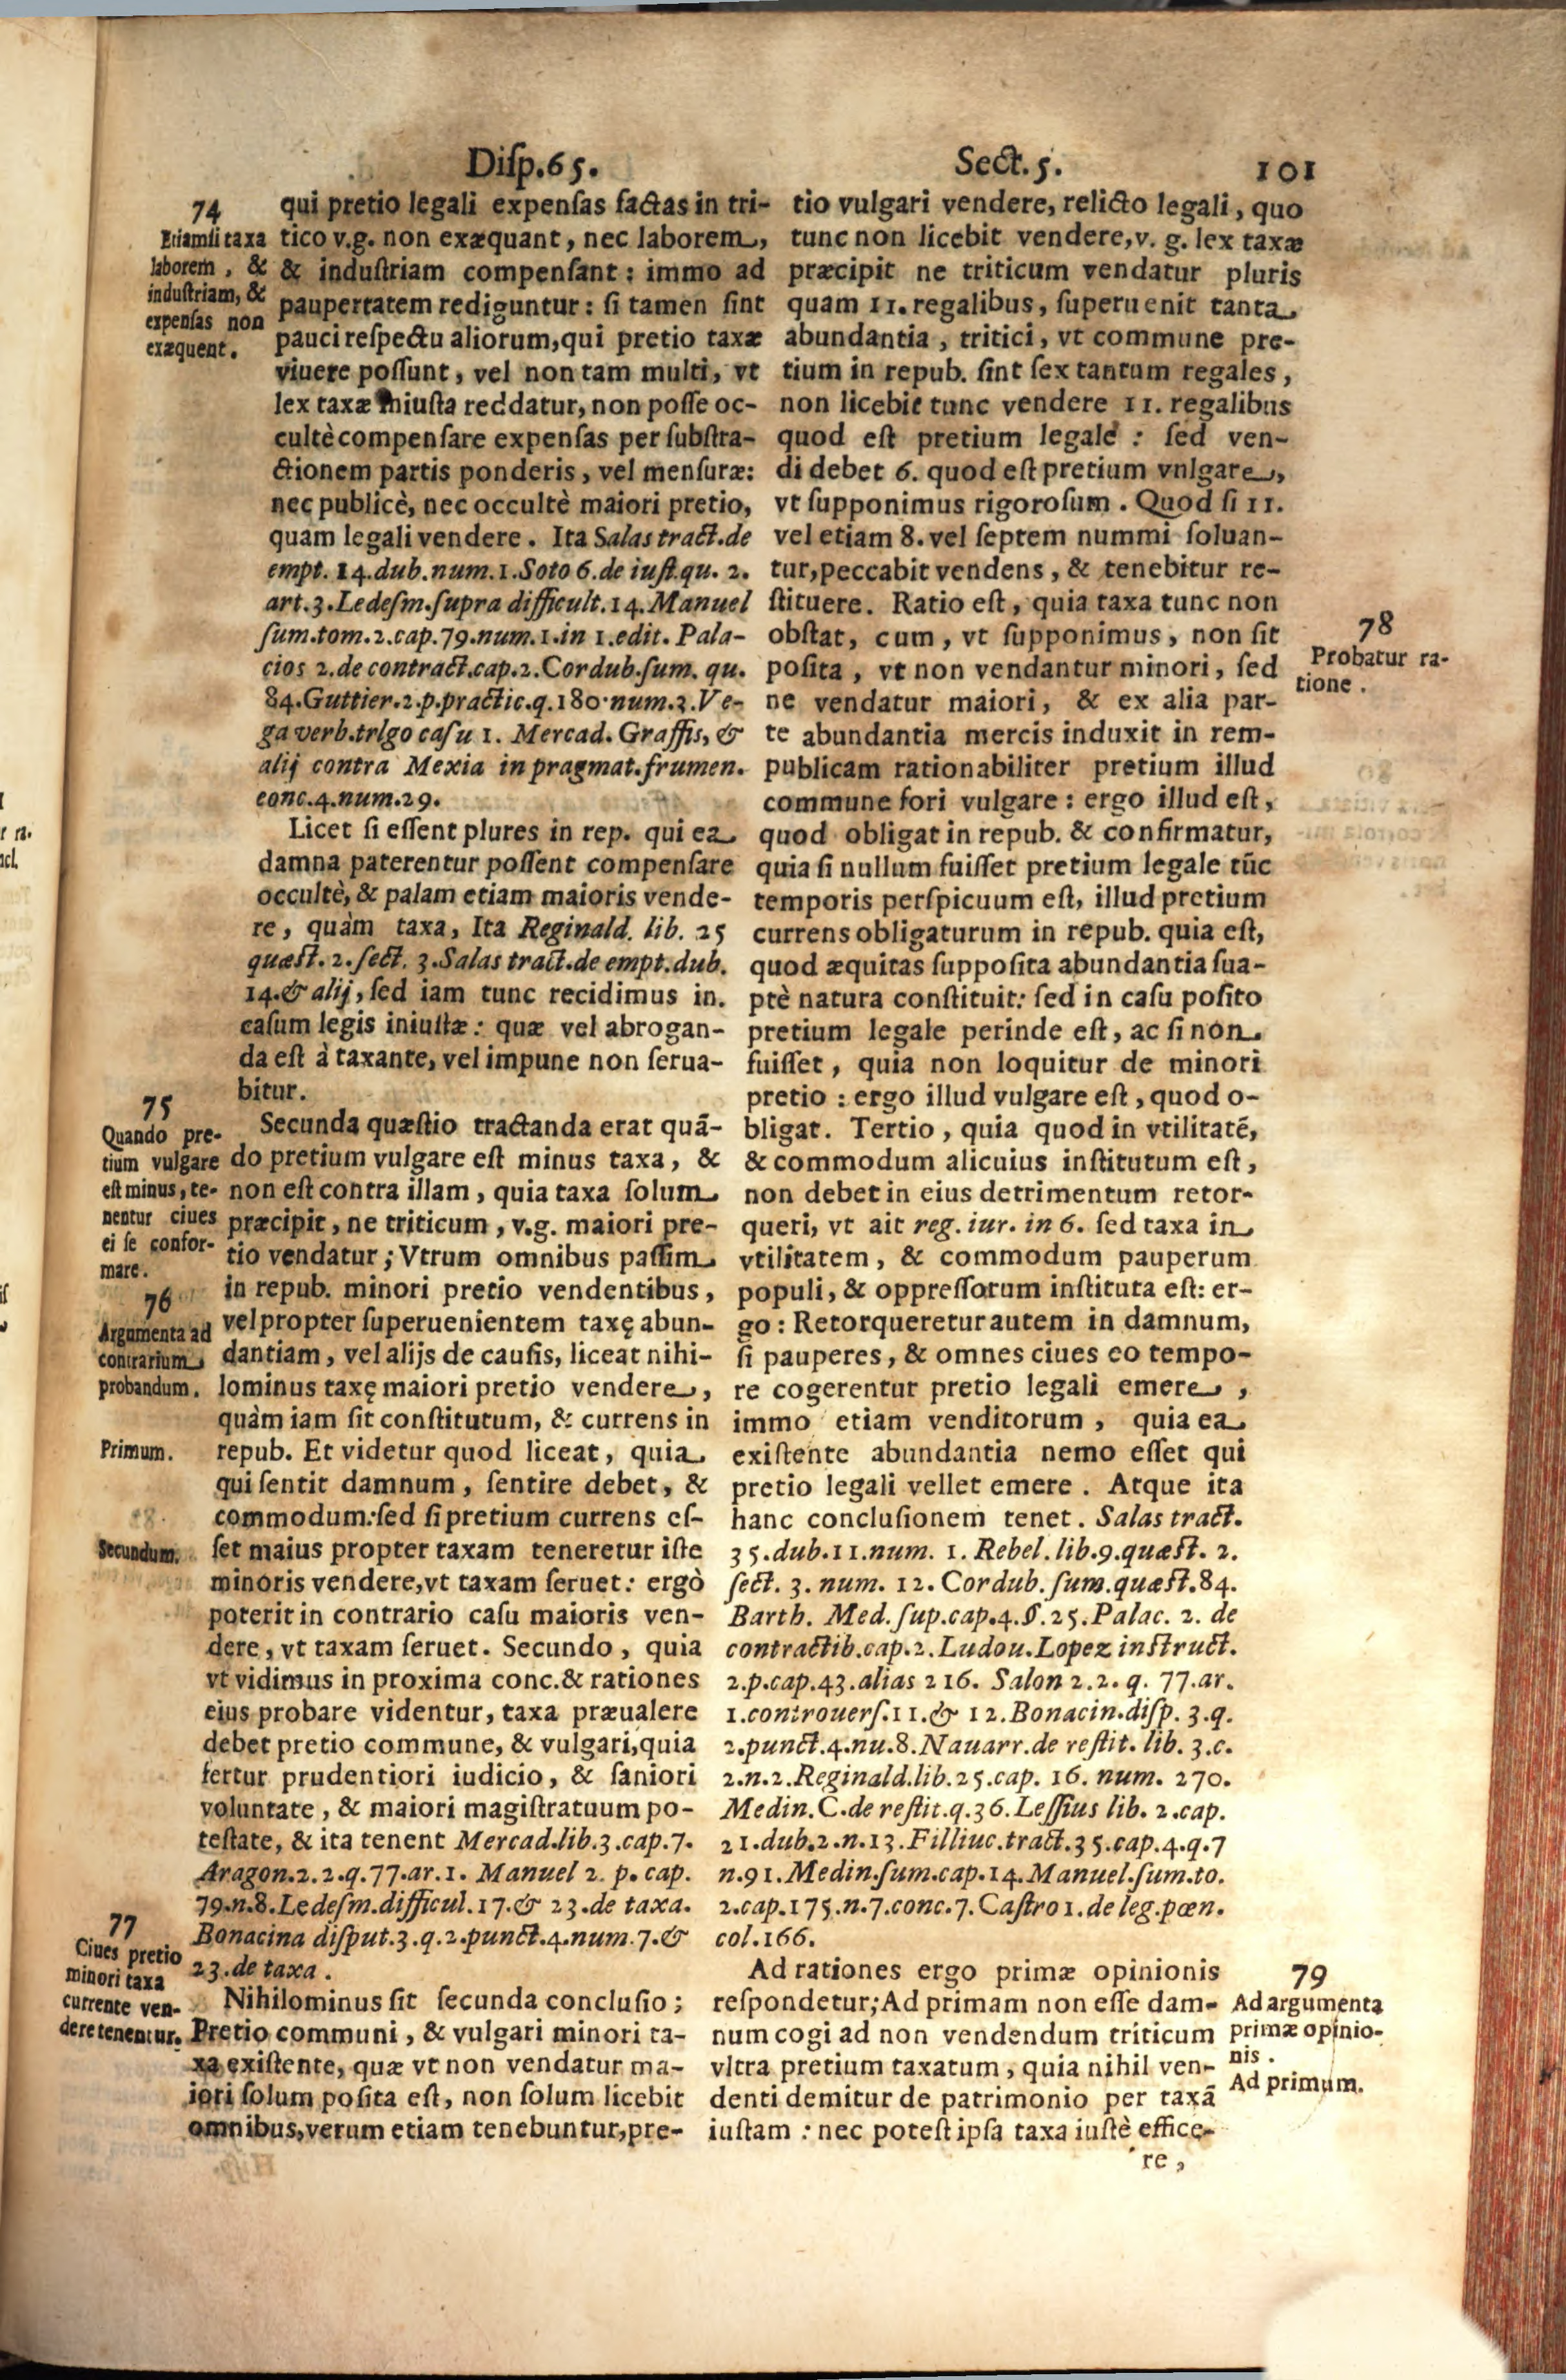 Disp.65. Sect.5. 101
74
Etiamsi taxa
laborem, &
industriam, &
expensas non
exæquent.
qui pretio legali expensas factas in tri-
tico v.g. non exæquant, nec laborem,
& industriam compensant: immo ad
paupertatem rediguntur: si tamen sint
pauci respectu aliorum, qui pretio taxæ
viuere possunt, vel non tam multi, vt
lex taxæ iniusta reddatur, non posse oc-
cultè compensare expensas per substra-
ctionem partis ponderis, vel mensuræ:
nec publicè, nec occultè maiori pretio,
quam legali vendere. Ita Salas tract.de
empt. 14.dub.num.1.Soto 6.de iust.qu. 2.
art.3.Ledesm.supra difficult.14.Manuel
sum.tom.2.cap.79.num.1.in 1.edit. Pala-
cios 2.de contract.cap.2.Cordub.sum. qu.
84.Guttier.2.p.practic.q.180.num.3.Ve-
ga verb.trlgo casu 1. Mercad. Graffis, &
alij contra Mexia in pragmat.frumen.
conc.4.num.29.
Licet si essent plures in rep. qui ea
damna paterentur possent compensare
occultè, & palam etiam maioris vende-
re, quàm taxa, Ita Reginald. lib. 25
quæst. 2. sect. 3.Salas tract.de empt.dub.
14.& alij, sed iam tunc recidimus in.
casum legis iniustæ: quæ vel abrogan-
da est à taxante, vel impune non serua-
bitur.
75
Quando pre-
tium vulgare
est minus, te-
nentur ciues
ei se confor-
mare.
Secunda quæstio tractanda erat quã-
do pretium vulgare est minus taxa, &
non est contra illam, quia taxa solum
præcipit, ne triticum, v.g. maiori pre-
tio vendatur; Vtrum omnibus passim
in repub. minori pretio vendentibus,
76
Argumenta ad
contrarium
probandum.
vel propter superuenientem taxę abun-
dantiam, vel alijs de causis, liceat nihi-
lominus taxę maiori pretio vendere,
quàm iam sit constitutum, & currens in
Primum.
repub. Et videtur quod liceat, quia
qui sentit damnum, sentire debet, &
commodum: sed si pretium currens es-
Secundum.
set maius propter taxam teneretur iste
minoris vendere, vt taxam seruet: ergò
poterit in contrario casu maioris ven-
dere, vt taxam seruet. Secundo, quia
vt vidimus in proxima conc.& rationes
eius probare videntur, taxa præualere
debet pretio commune, & vulgari, quia
fertur prudentiori iudicio, & saniori
voluntate, & maiori magistratuum po-
testate, & ita tenent Mercad.lib.3.cap.7.
Aragon.2.2.q.77.ar.1. Manuel 2. p. cap.
79.n.8.Ledesm.difficul.17.& 23.de taxa.
Bonacina disput.3.q.2.punct.4.num.7.&
23.de taxa.
77
Ciues pretio
minori taxa
currente ven-
dere tenentur.
Nihilominus sit secunda conclusio;
Pretio communi, & vulgari minori ta-
xa existente, quæ vt non vendatur ma-
iori solum posita est, non solum licebit
omnibus, verum etiam tenebuntur, pre-
tio vulgari vendere, relicto legali, quo
tunc non licebit vendere, v. g. lex taxæ
præcipit ne triticum vendatur pluris
quam 11. regalibus, superuenit tanta
abundantia, tritici, vt commune pre-
tium in repub. sint sex tantum regales,
non licebit tunc vendere 11. regalibus
quod est pretium legale: sed ven-
di debet 6. quod est pretium vnlgare,
vt supponimus rigorosum. Quod si 11.
vel etiam 8. vel septem nummi soluan-
tur, peccabit vendens, & tenebitur re-
stituere. Ratio est, quia taxa tunc non
obstat, cum, vt supponimus, non sit
posita, vt non vendantur minori, sed
ne vendatur maiori, & ex alia par-
te abundantia mercis induxit in rem-
publicam rationabiliter pretium illud
commune fori vulgare: ergo illud est,
quod obligat in repub. & confirmatur,
quia si nullum fuisset pretium legale tũc
temporis perspicuum est, illud pretium
currens obligaturum in repub. quia est,
quod æquitas supposita abundantia sua-
ptè natura constituit: sed in casu posito
pretium legale perinde est, ac si non
fuisset, quia non loquitur de minori
pretio: ergo illud vulgare est, quod o-
bligat. Tertio, quia quod in vtilitatẽ,
& commodum alicuius institutum est,
non debet in eius detrimentum retor-
queri, vt ait reg. iur. in 6. sed taxa in
vtilitatem, & commodum pauperum
populi, & oppressorum instituta est: er-
go: Retorqueretur autem in damnum,
si pauperes, & omnes ciues eo tempo-
re cogerentur pretio legali emere,
immo etiam venditorum, quia ea
existente abundantia nemo esset qui
pretio legali vellet emere. Atque ita
hanc conclusionem tenet. Salas tract.
35.dub.11.num. 1. Rebel.lib.9.quæst. 2.
sect. 3. num. 12. Cordub. sum.quæst.84.
Barth. Med. sup.cap.4.§.25.Palac. 2. de
contractib.cap.2.Ludou.Lopez instruct.
2.p.cap.43.alias 216. Salon 2.2. q. 77.ar.
1.controuers.11.& 12.Bonacin.disp. 3.q.
2.punct.4.nu.8.Nauarr.de restit. lib. 3.c.
2.n.2.Reginald.lib.25.cap. 16. num. 270.
Medin.C.de restit.q.36.Lessius lib. 2.cap.
21.dub.2.n.13.Filliuc.tract.35.cap.4.q.7
n.91.Medin.sum.cap.14.Manuel.sum.to.
2.cap.175.n.7.conc.7.Castro 1. de leg.pœn.
col.166.
78
Probatur ra-
tione.
Ad rationes ergo primæ opinionis
respondetur; Ad primam non esse dam-
num cogi ad non vendendum triticum
vltra pretium taxatum, quia nihil ven-
denti demitur de patrimonio per taxã
iustam: nec potest ipsa taxa iustè effice-
re,
79
Ad argumenta
primæ opinio-
nis.
Ad primum.